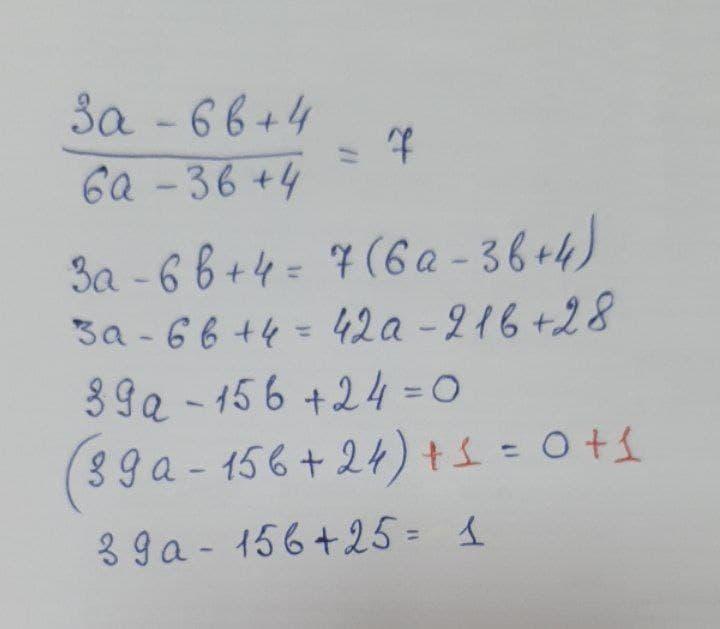 3a - 6b + 4
6a - 3b + 4 = 7
3a - 6b + 4 = 7(6a - 3b + 4)
3a - 6b + 4 = 42a - 21b + 28
39a - 15b + 24 = 0
(39a - 15b + 24) + 1 = 0 + 1
39a - 15b + 25 = 1